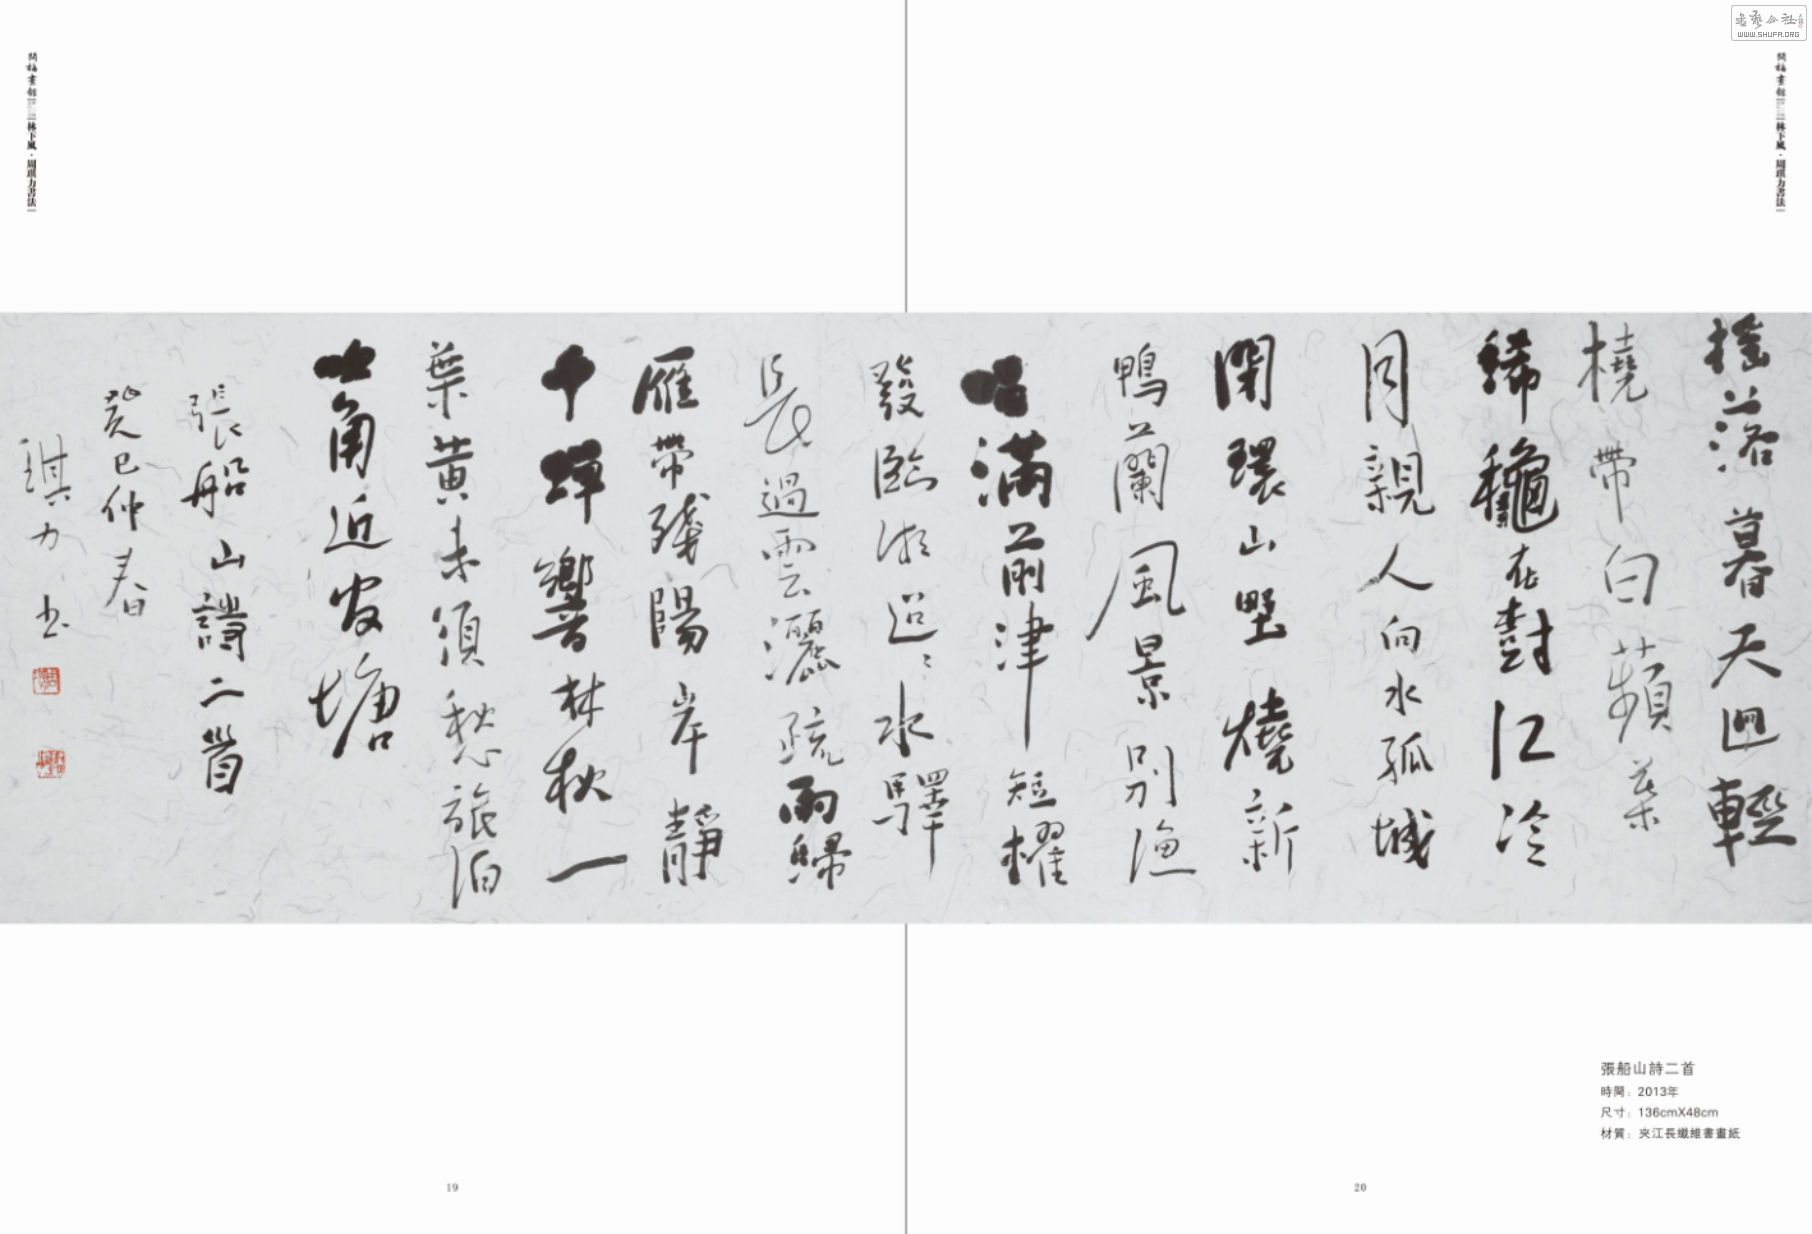 搖落暮天迴輕
橈帶白蘋葉
稀龝在對江冷
月親人向水孤城
閑環山墅燒新
鴨闌風景別漁
唱滿前津短櫂
發臨湖迢〻水驛
長過雲灑疏雨歸
雁帶殘陽岸靜
千蟬響林秋一
葉黃未須愁旅泊
女角近官塘
張船山詩二首
癸巳仲春
琪力書
張船山詩二首
時間：2013年
尺寸：136cmX48cm
材質：夾江長纖維書畫紙
問梅畫館
林下風·周琪力書法
問梅畫館
林下風·周琪力書法
19
20
WWW.SHUFA.ORG